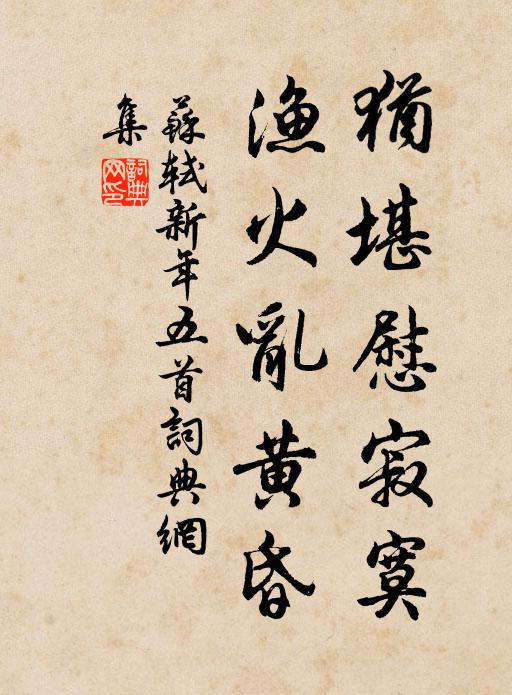 猶堪慰寂寞
漁火亂黃昏
蘇軾新年五首詞典網
集
詞典
网印